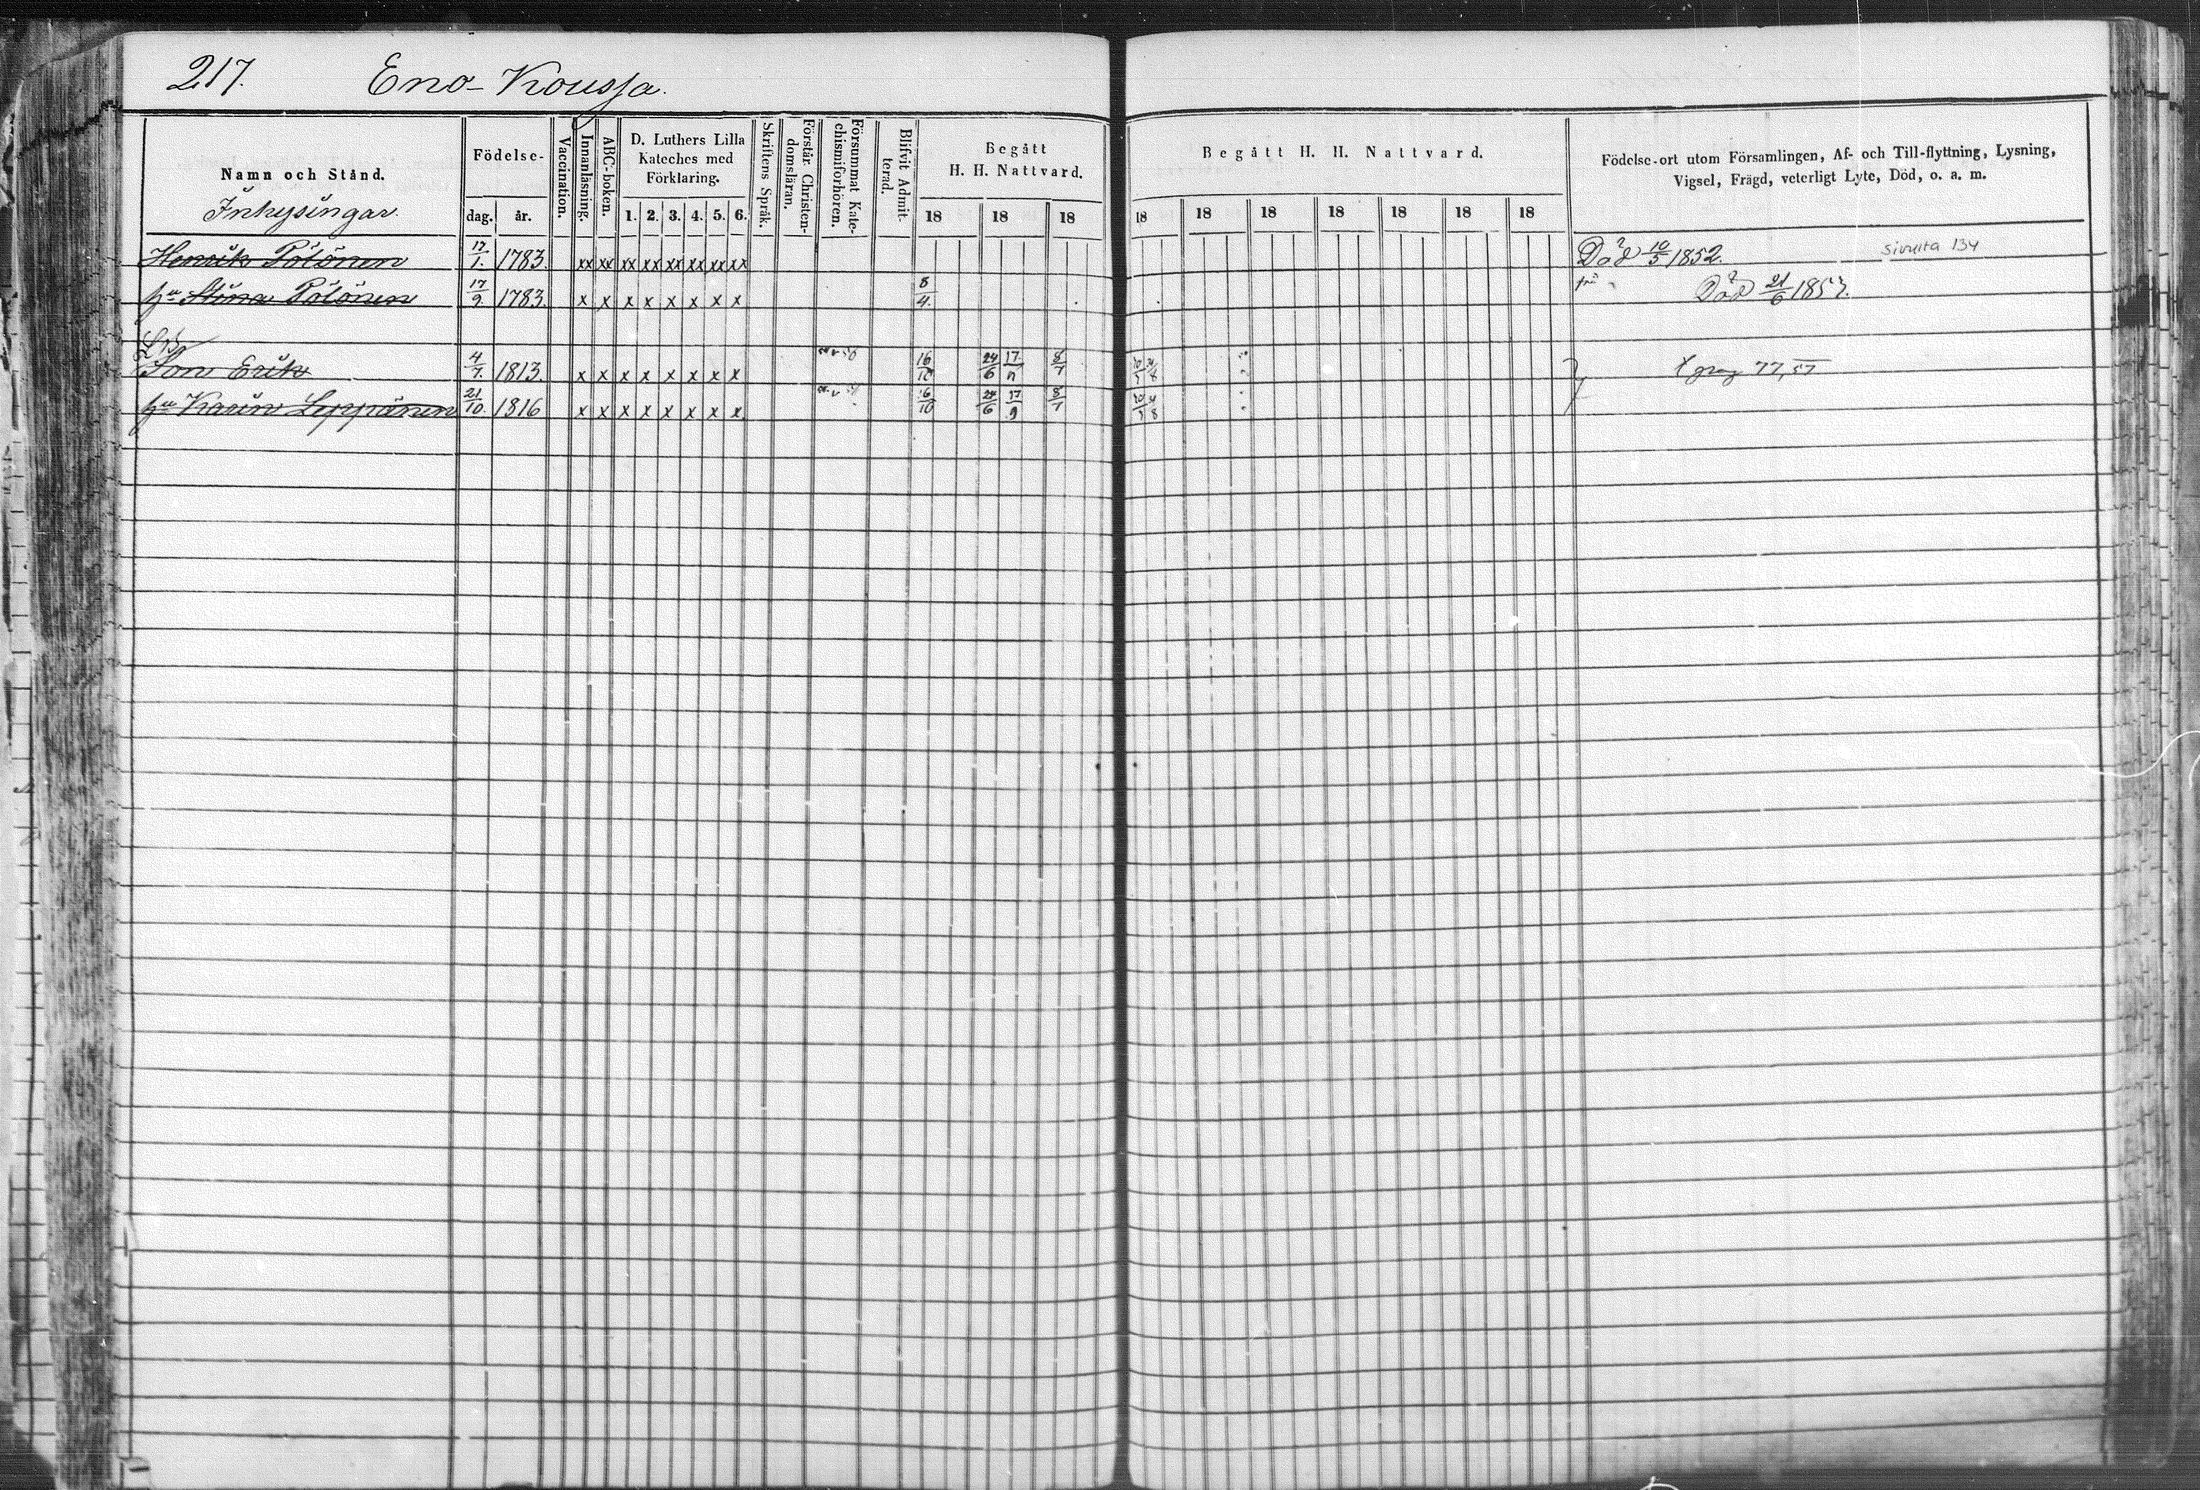 217. Eno-Koussa.
Namn och Stånd.
Inhysingar.
Födelse-
dag. år.
Vaccination.
Innanläsning.
ABC-boken.
D. Luthers Lilla
Kateches med
Förklaring.
1. 2. 3. 4. 5. 6.
Skriftens Språk.
Förstår Christen-
domsläran.
Försummat Kate-
chismiförhören.
Blifvit Admit-
terad.
Begått
H. H. Nattvard.
18 18 18
Begått H. H. Nattvard.
18 18 18 18 18 18 18
Födelse-ort utom Församlingen, Af- och Till-flyttning, Lysning,
Vigsel, Frägd, veterligt Lyte, Död, o. a. m.
Henrik Pölönen 17/1. 1783. xx xx xx xx xx xx xx xx Död 10/5 1852. sivulta 134
hu Stina Pölönen 17/9. 1783. x x x x x x x x 8/4. Död 21/6 1857.
Son Erik 4/7. 1813. x x x x x x x x 16/10 24/6 17 8/7
hu Karin Leppänen 21/10. 1816 x x x x x x x x. 16/10 24/6 17/9 8/7